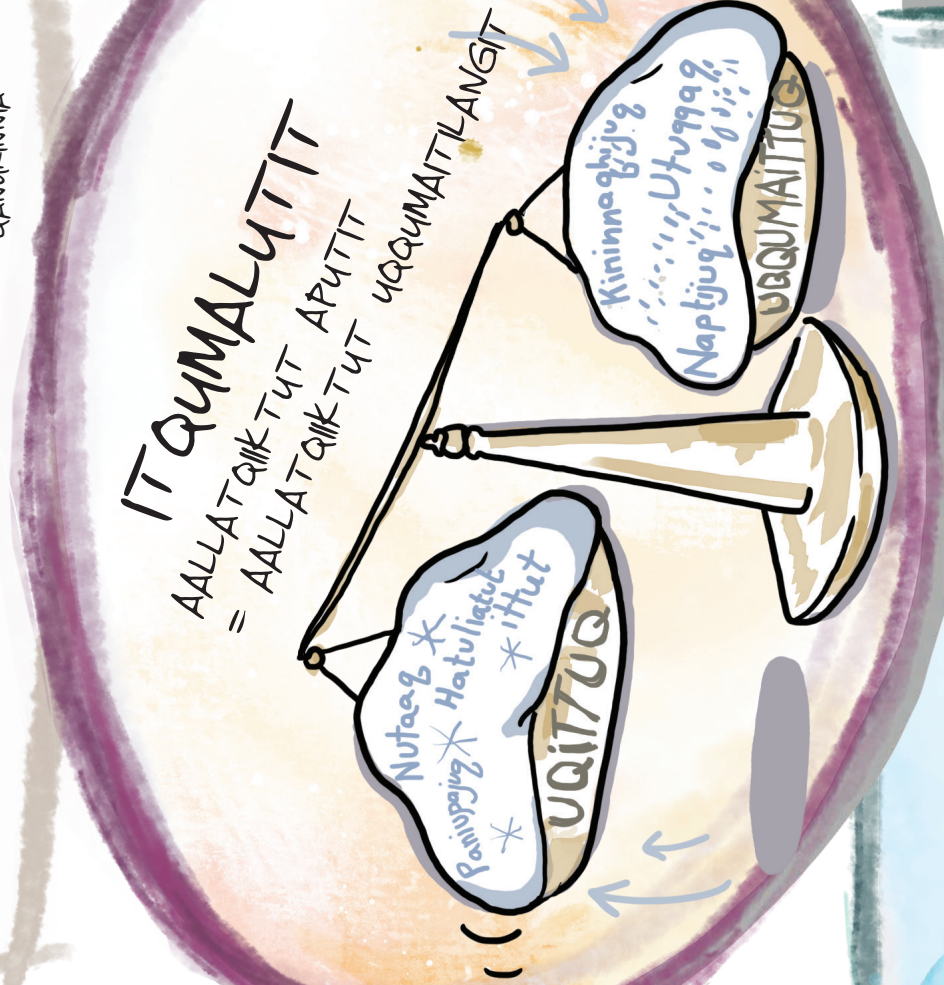 ITQUMALUTIT
AALLATQIIKTUT APUTIT
= AALLATQIIKTUT UQQUMAITILANGIT
Nutaaq
Hatuliatut
ittut
UQITTUQ
Kininnaqhijuq
Utuqqaq
Naptijuq
UQQUMAITTUQ